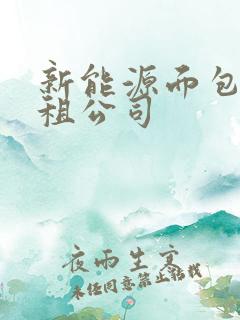 新能源而包
租公司
夜雨生寒
未经同意禁止转载